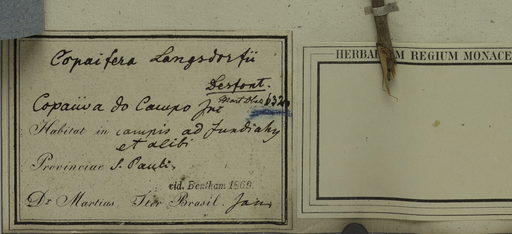 Copaifera Langsdorfii
Desfont.
Copaiiva do Campo
Habitat in campis ad Jundiahy
et alibi
Provinciae S. Pauli.
vid. Bentham 1869.
Dr Martius Iter Brasil. Jan.
HERBARIUM REGIUM MONACE